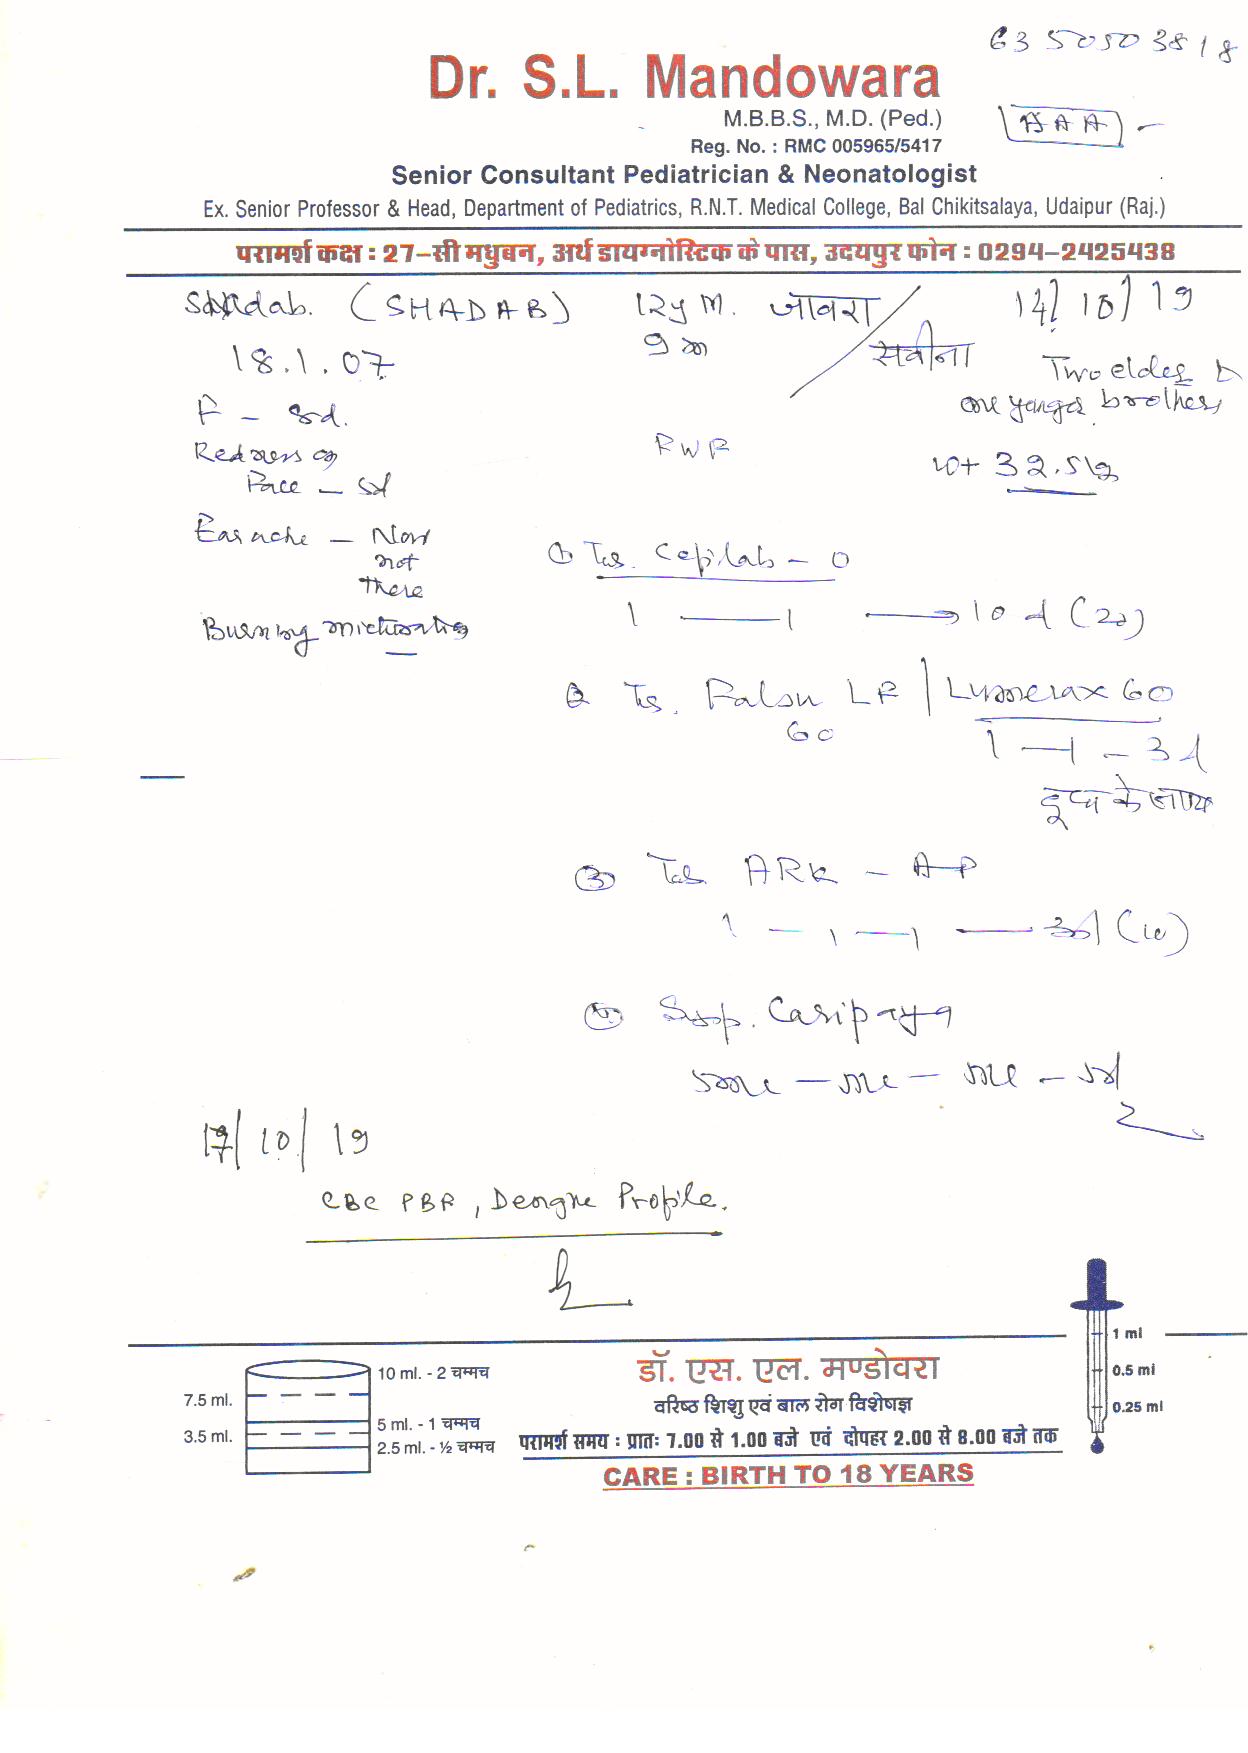 63 50503818
Dr. S.L. Mandowara
M.B.B.S., M.D. (Ped.)
AAA
Reg. No. : RMC 005965/5417
Senior Consultant Pediatrician & Neonatologist
Ex. Senior Professor & Head, Department of Pediatrics, R.N.T. Medical College, Bal Chikitsalaya, Udaipur (Raj.)
परामर्श कक्ष : 27-सी मधुबन, अर्थ डायग्नोस्टिक के पास, उदयपुर फोन : 0294-2425438
(SHADAB) 12y M. जावरा / 14/10/19
18.1.07 9m सवीना
Two elder
one younger brother
F - 5d.
Redness of
Face - 5d
wt 32.5kg
Earache - Now
not
there
Burning micturation
① Tab. Cefilab - O
1 — 1 → 10 d (20)
② Tab. Falsu LF | Lumerax 60
60
1 — 1 - 3d
दूध के साथ
③ Tab ARK - AP
1 - 1 - 1 — 3d (10)
④ Syp. Caripaya
5ml - ml - ml - 5d
17/10/19
CBC PBF, Dengue Profile.
1 ml
0.5 ml
0.25 ml
10 ml. - 2 चम्मच
7.5 ml.
5 ml. - 1 चम्मच
3.5 ml.
2.5 ml. - ½ चम्मच
डॉ. एस. एल. मण्डोवरा
वरिष्ठ शिशु एवं बाल रोग विशेषज्ञ
परामर्श समय : प्रातः 7.00 से 1.00 बजे एवं दोपहर 2.00 से 8.00 बजे तक
CARE : BIRTH TO 18 YEARS